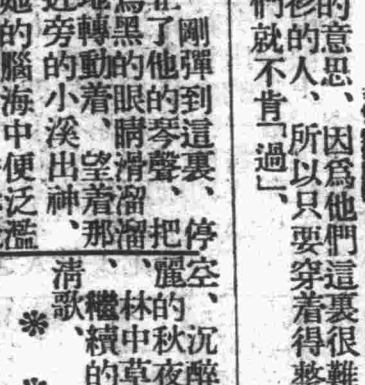 的意思、因爲他們這裏很難
衫的人、所以只要穿着得整
們就不肯「過」、
剛彈到這裏、停
了他的琴聲、把
烏黑的眼睛滑溜溜
地轉動着、望着那
近旁的小溪出神、
她的腦海中便泛濫
空、沉醉
麗的秋夜
、林中草
、繼續的
清歌、
＊